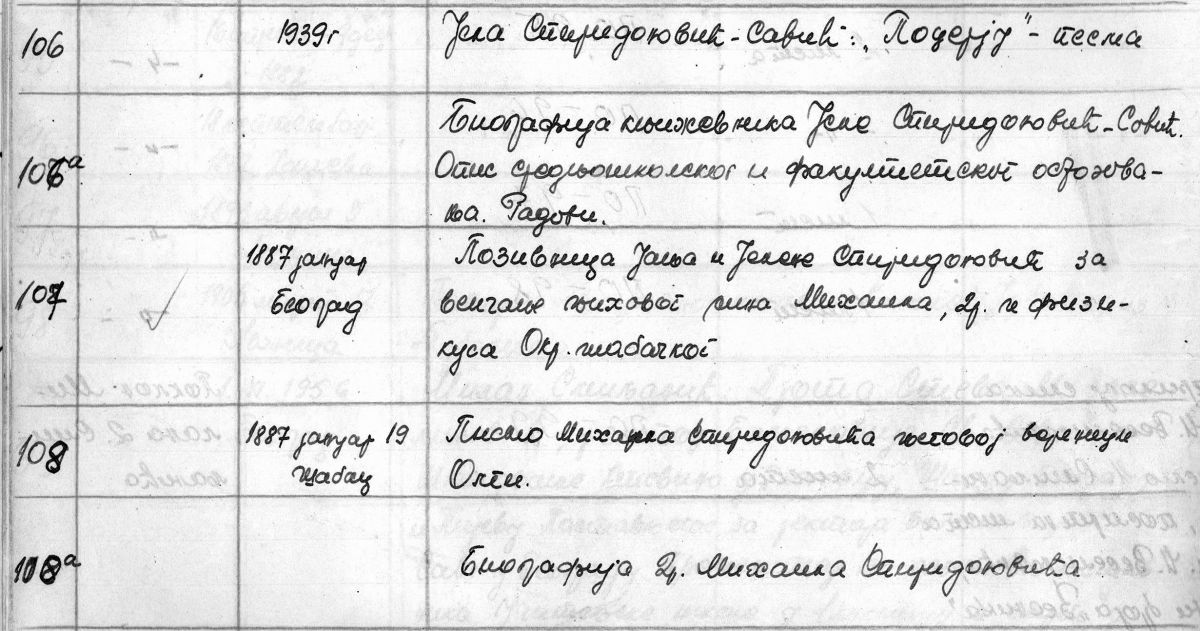 106 1939г Јела Спиридоновић-Савић: „Подерју" - песма
106а Биографија књижевника Јеле Спиридоновић-Савић.
Опис средњошколског и факултетског образова-
ња. Радови.
107 1887 јануар Позивница Јања и Јелене Спиридоновић за
Београд венчање њиховог сина Михаила, др. и физи-
куса Окр. шабачког
108 1887 јануар 19 Писмо Михаила Спиридоновића његовој вереници
Шабац
108а Биографија др. Михаила Спиридоновића